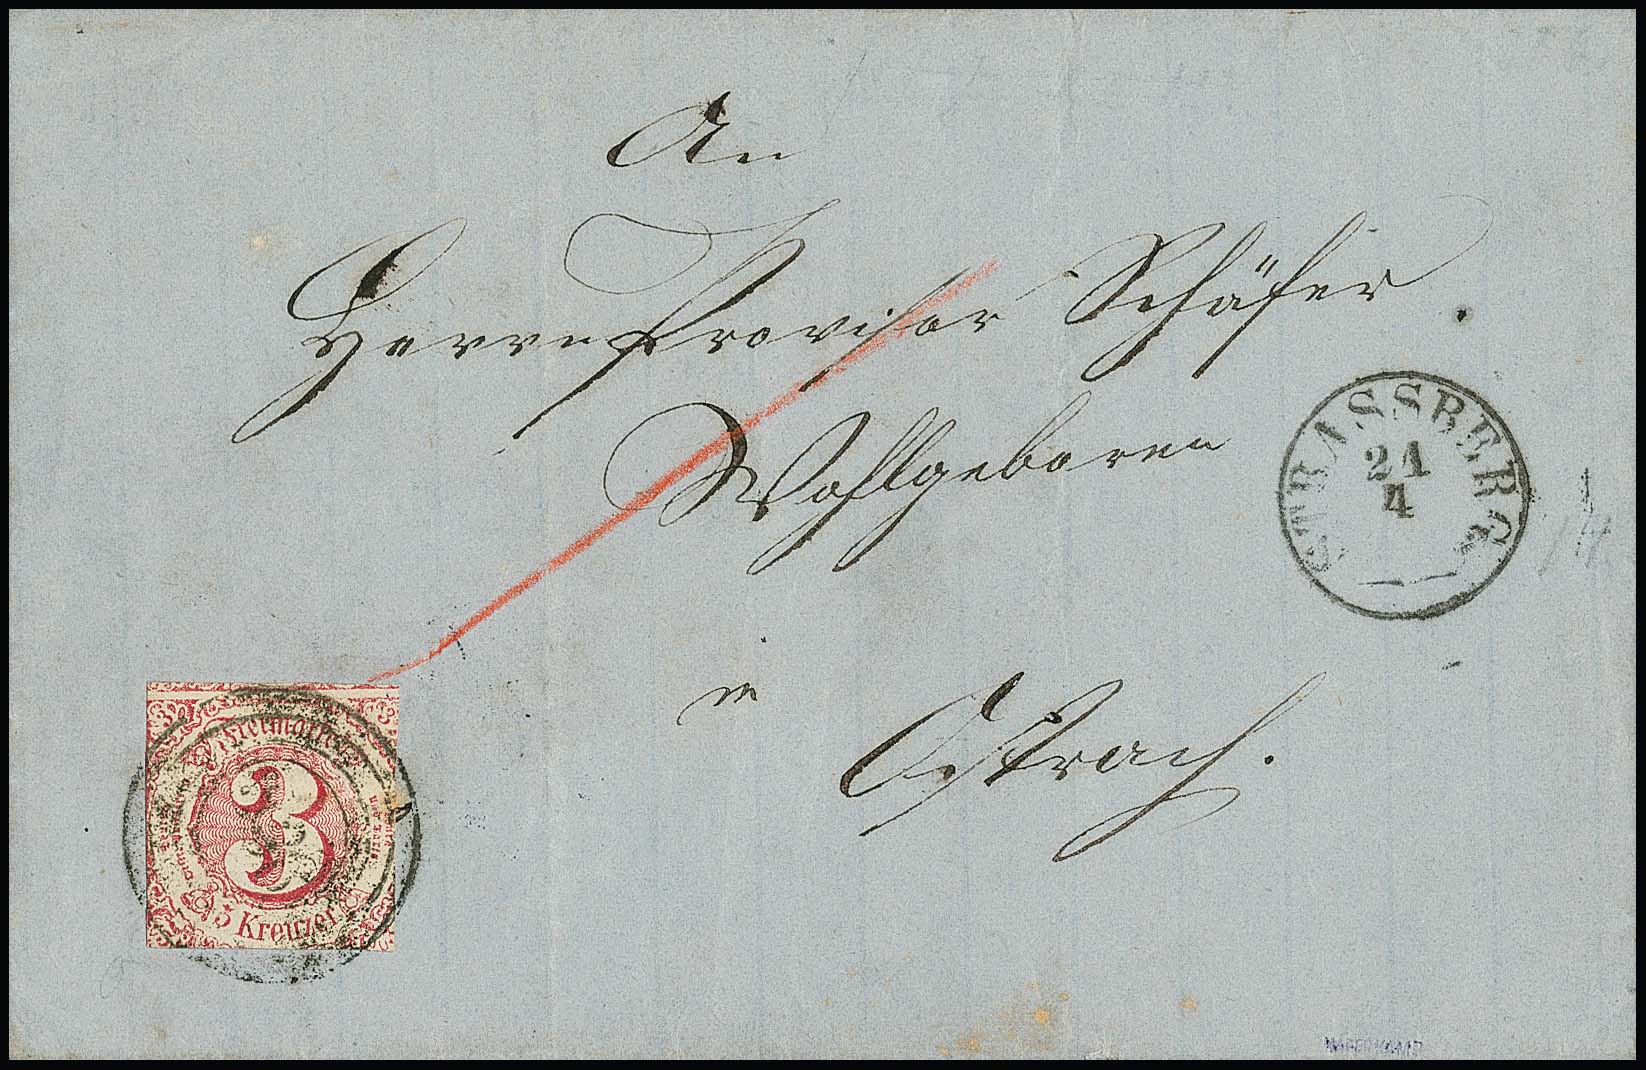 An
Herrn Provisor Schäfer.
Wohlgeboren
STRASSBERG
21
4
in
Ostrach.
Freimarke
3
3 Kreuzer
HAFERKAMP